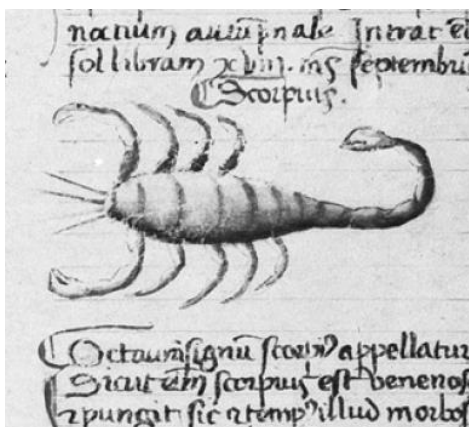 natium autu̅pnale Intrat e̅i
sol libram xviii. me̅s septembris
Scorpius.
Octauu̅ signu̅ scorpi⁹ appellatur
Sicut em̅ scorpius est venenos
⁊ pungit sic ⁊ temp⁹ illud morbos